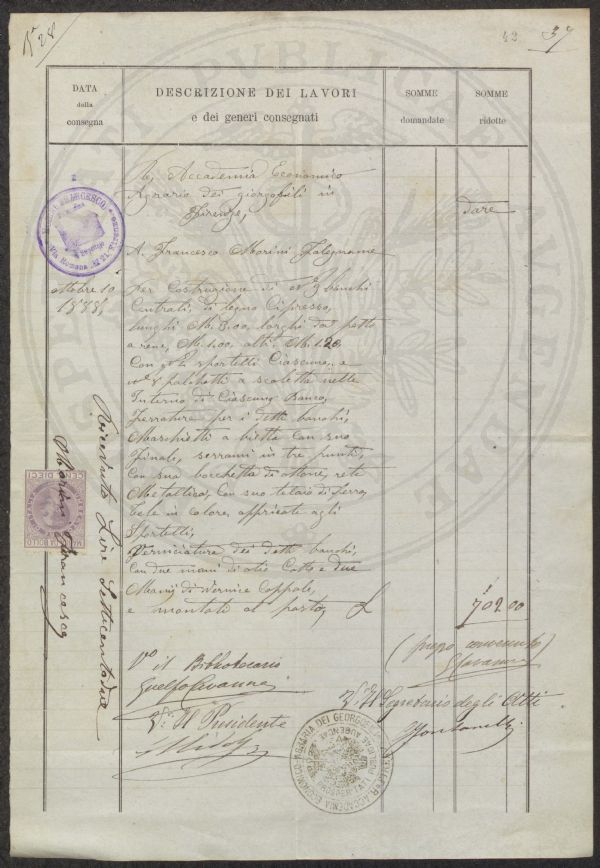 N° 28
42 37
DATA
della
consegna
DESCRIZIONE DEI LAVORI
e dei generi consegnati
SOMME
domandate
SOMME
ridotte
R. Accademia Economico
Agraria dei Georgofili in
Firenze, dare
A Francesco Morini Falegname
ottobre 10
188
Per Costruzione di N° 2 banchi
Centrali, di legno Cipresso,
lunghi M. 3.00, larghi da petto
a reni, M. 1.00, alti M. 1.20
Con sportelli Ciascuno, e
N° 8 palchetti a scaletta nelle
Interno di Ciascun Banco,
ferrature per i detti banchi,
Maschietti a bietta Con suo
finale, serrami in tre punti,
Con sua bocchetta di ottone, rete
Metallica, Con suo telaio di ferro,
tele in Colore, appricate agli
Sportelli,
Verniciature dei detti banchi,
Con due mani di olio Cotto e due
Manij di Vernice Coppale,
e montato al posto, £ 702.00
(prezzo convenuto)
V° il Bibliotecario
V° Il Segretario degli Atti
V° Il Presidente
Ricevuto Lire Settecentodue
Morini Francesco
MARCA DA BOLLO
CENT. DIECI
Via Romana
Firenze
R. ACCADEMIA ECONOMICO-AGRARIA DEI GEORGOFILI
PROSPERITATI PUBLICAE AUGENDAE